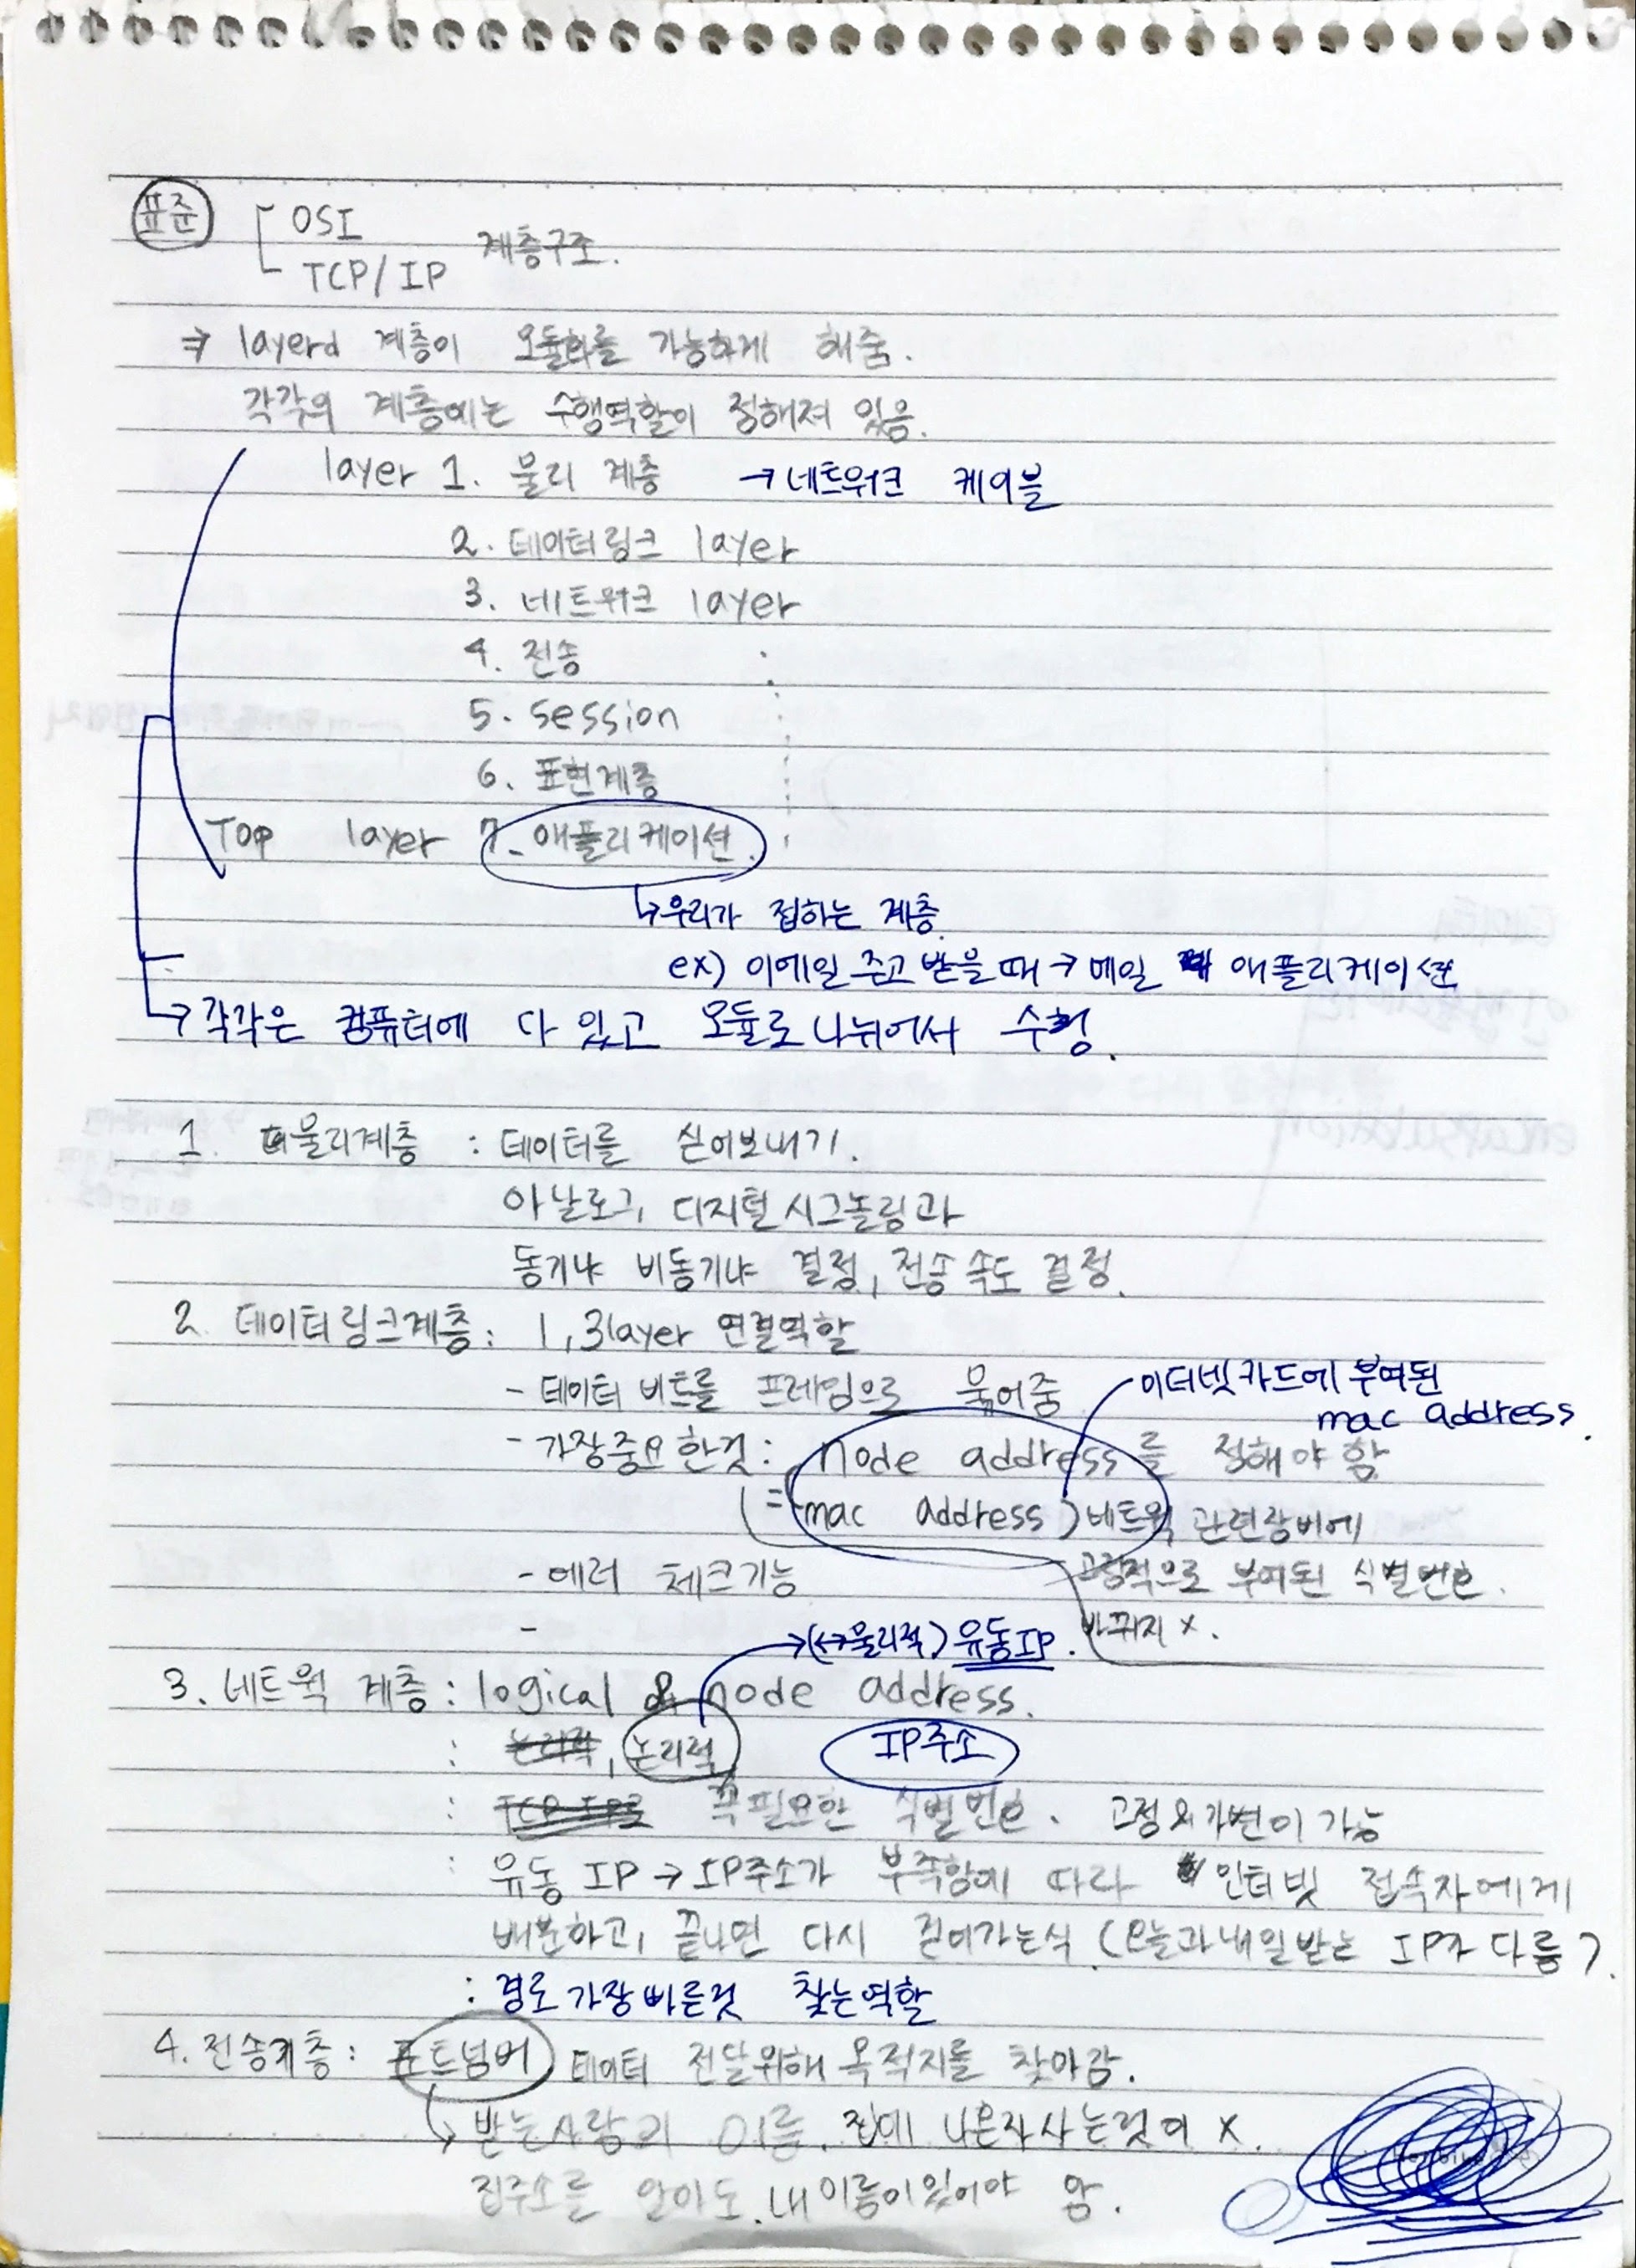 표준
OSI
TCP/IP 계층구조.
⇒ layerd 계층이 모듈화를 가능하게 해줌.
각각의 계층에는 수행역할이 정해져 있음.
layer 1. 물리 계층 → 네트워크 케이블
2. 데이터링크 layer
3. 네트워크 layer
4. 전송
5. session
6. 표현계층
Top layer 7. 애플리케이션
↳ 우리가 접하는 계층.
ex) 이메일 주고 받을 때 → 메일 애플리케이션
→ 각각은 컴퓨터에 다 있고 모듈로 나뉘어서 수행.
1. 물리계층 : 데이터를 실어보내기.
아날로그, 디지털 시그놀링과
동기냐 비동기냐 결정, 전송 속도 결정.
2. 데이터링크계층 : 1, 3 layer 연결역할
- 데이터 비트를 프레임으로 묶어줌
이더넷카드에 부여된
mac address.
- 가장중요한것 : node address를 정해야 함
= (mac address) 네트웍 관련장비에
- 에러 체크기능
고정적으로 부여된 식별번호.
바뀌지 x.
-
→ (↔물리적) 유동IP.
3. 네트웍 계층 : logical & node address.
: 논리적, 논리적 IP주소
: TCP IP로 꼭필요한 식별번호. 고정&가변이 가능
: 유동 IP → IP주소가 부족함에 따라 인터넷 접속자에게
배분하고, 끝나면 다시 걷어가는식 (오늘과 내일받는 IP가 다름).
: 경로 가장빠른것 찾는역할
4. 전송계층 : 포트넘버 데이터 전달위해 목적지를 찾아감.
↳ 받는사람의 이름. 집에 나혼자사는것이 x.
집주소를 알아도 내이름이있어야 함.